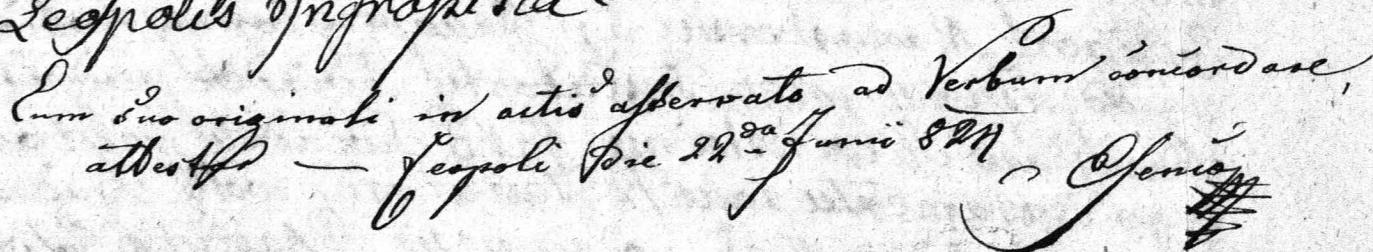 Leopolis Ingrossista
Cum suo originali in actis asservato ad Verbum concordare,
attestor — Leopoli Die 22da Junii 824